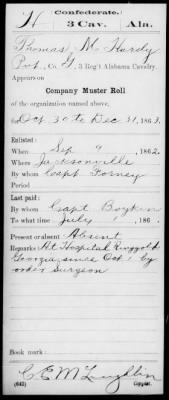 Confederate.
H 3 Cav. Ala.
Thomas M Hardy
Pvt, Co. G, 3 Reg't Alabama Cavalry.
Appears on
Company Muster Roll
of the organization named above,
for Oct 30 to Dec 31, 1863.
Enlisted:
When Sep 9, 1862.
Where Jacksonville
By whom Capt Forney
Period
Last paid:
By whom Capt Boykin
To what time July 1, 186 .
Present or absent Absent
Remarks At Hospital Ringgold
Georgia since Oct 1 by
order Surgeon
Book mark:
C E McLaughlin
(642) Copyist.